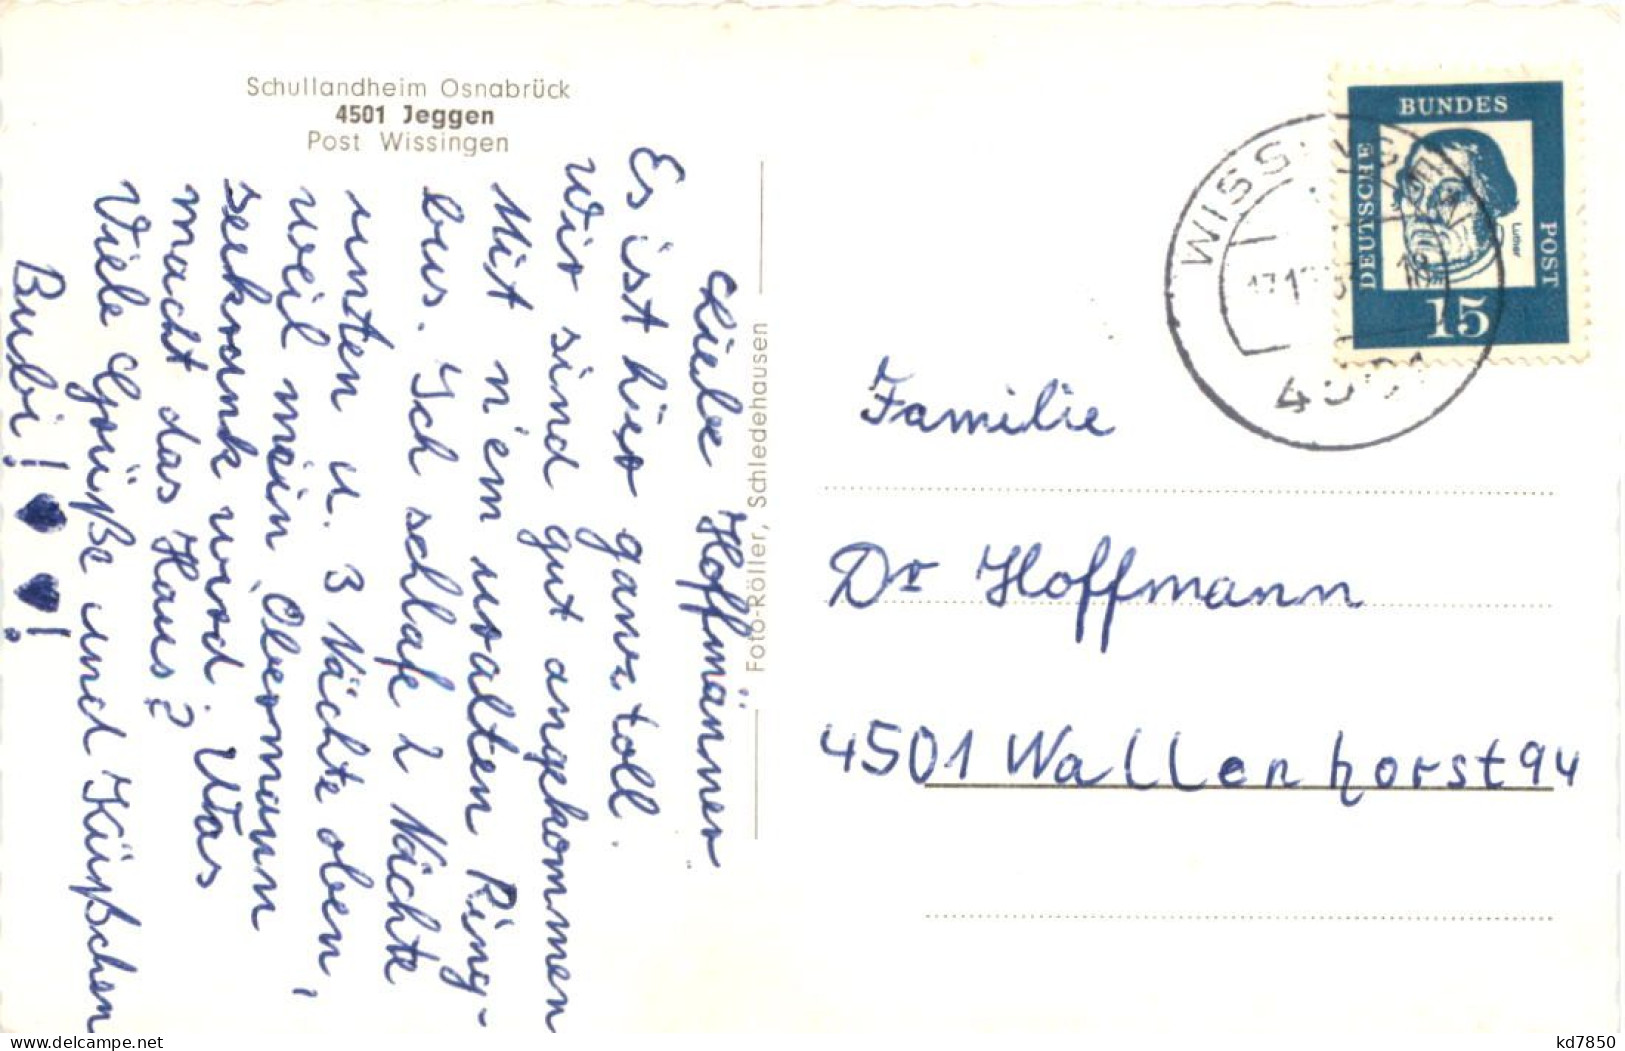 Schullandheim Osnabrück
4501 Jeggen
Post Wissingen
Liebe Hoffmänner
Es ist hier ganz toll.
Wir sind gut angekommen
Mit n'em uralten Ring-
bus. Ich schlafe 2 Nächte
unten u. 3 Nächte oben,
weil mein Obermann
seekrank wird. Was
macht das Haus?
Viele Grüße und Küßchen
Bubi! ♥ ♥!
Foto-Röller, Schledehausen
BUNDES
DEUTSCHE
POST
Luther
15
Familie
Dr Hoffmann
4501 Wallenhorst 94
kd7850